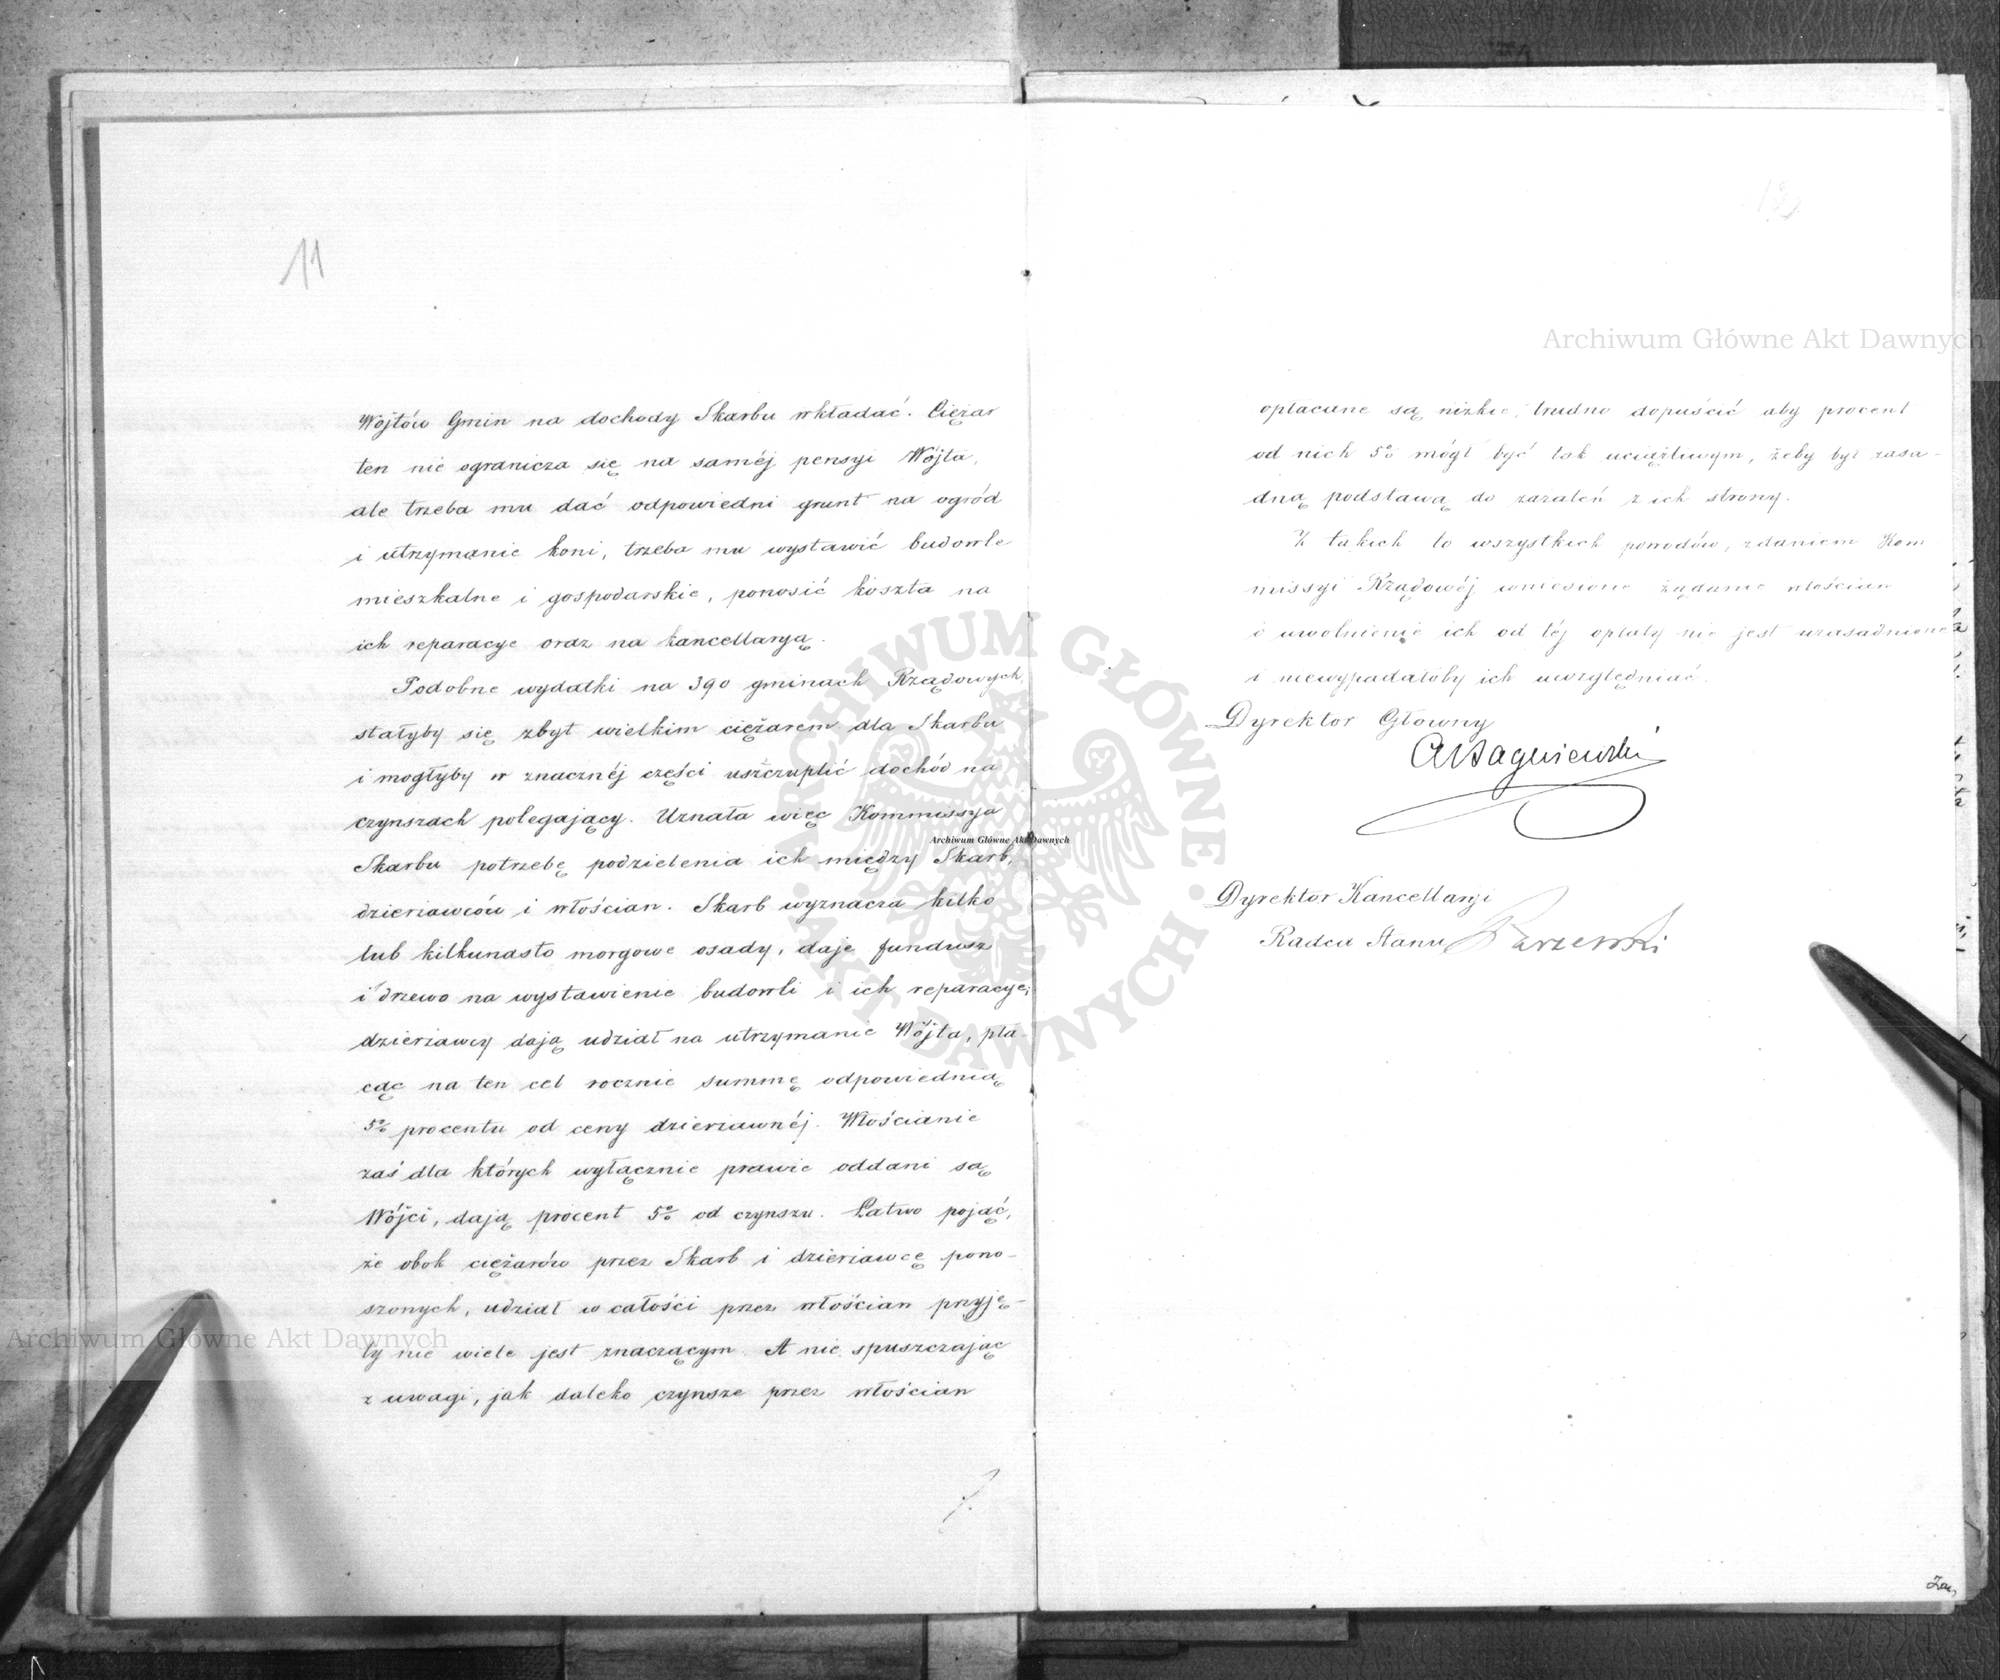 11
Wójtów Gmin na dochody Skarbu wkładać. Ciężar
ten nie ogranicza się na saméj pensyi Wójta,
ale trzeba mu dać odpowiedni grunt na ogród
i utrzymanie koni, trzeba mu wystawić budowle
mieszkalne i gospodarskie, ponosić koszta na
ich reparacye oraz na kancellaryą.
Podobne wydatki na 390 gminach Rządowych
stałyby się zbyt wielkim ciężarem dla Skarbu
i mogłyby w znacznéj części uszczuplić dochód na
czynszach polegający. Uznała więc Kommissya
Skarbu potrzebę podzielenia ich między Skarb,
dzierżawców i włościan. Skarb wyznacza kilko
lub kilkunasto morgowe osady, daje fundusz
i drzewo na wystawienie budowli i ich reparacye;
dzierżawcy dają udział na utrzymanie Wójta, pła-
cąc na ten cel rocznie summę odpowiednią
5% procentu od ceny dzierżawnéj. Włościanie
zaś dla których wyłącznie prawie oddani są
Wójci, dają procent 5% od czynszu. Łatwo pojąć,
że obok ciężarów przez Skarb i dzierżawcę pono-
szonych, udział w całości przez włościan przyję-
ty nie wiele jest znaczącym. A nie spuszczając
z uwagi, jak daleko czynsze przez włościan
12
opłacane są nizkie, trudno dopuścić aby procent
od nich 5% mógł być tak uciążliwym, żeby był zasa-
dną podstawą do zażaleń z ich strony.
Z takich to wszystkich powodów, zdaniem Kom
missyi Rządowéj wniesione żądanie włościan
o uwolnienie ich od téj opłaty nie jest uzasadnione
i niewypadałoby ich uwzględniać.
Dyrektor Główny
Dyrektor Kancellaryi
Radca Stanu
Archiwum Główne Akt Dawnych
Archiwum Główne Akt Dawnych
Archiwum Główne Akt Dawnych
ARCHIWUM GŁÓWNE AKT DAWNYCH